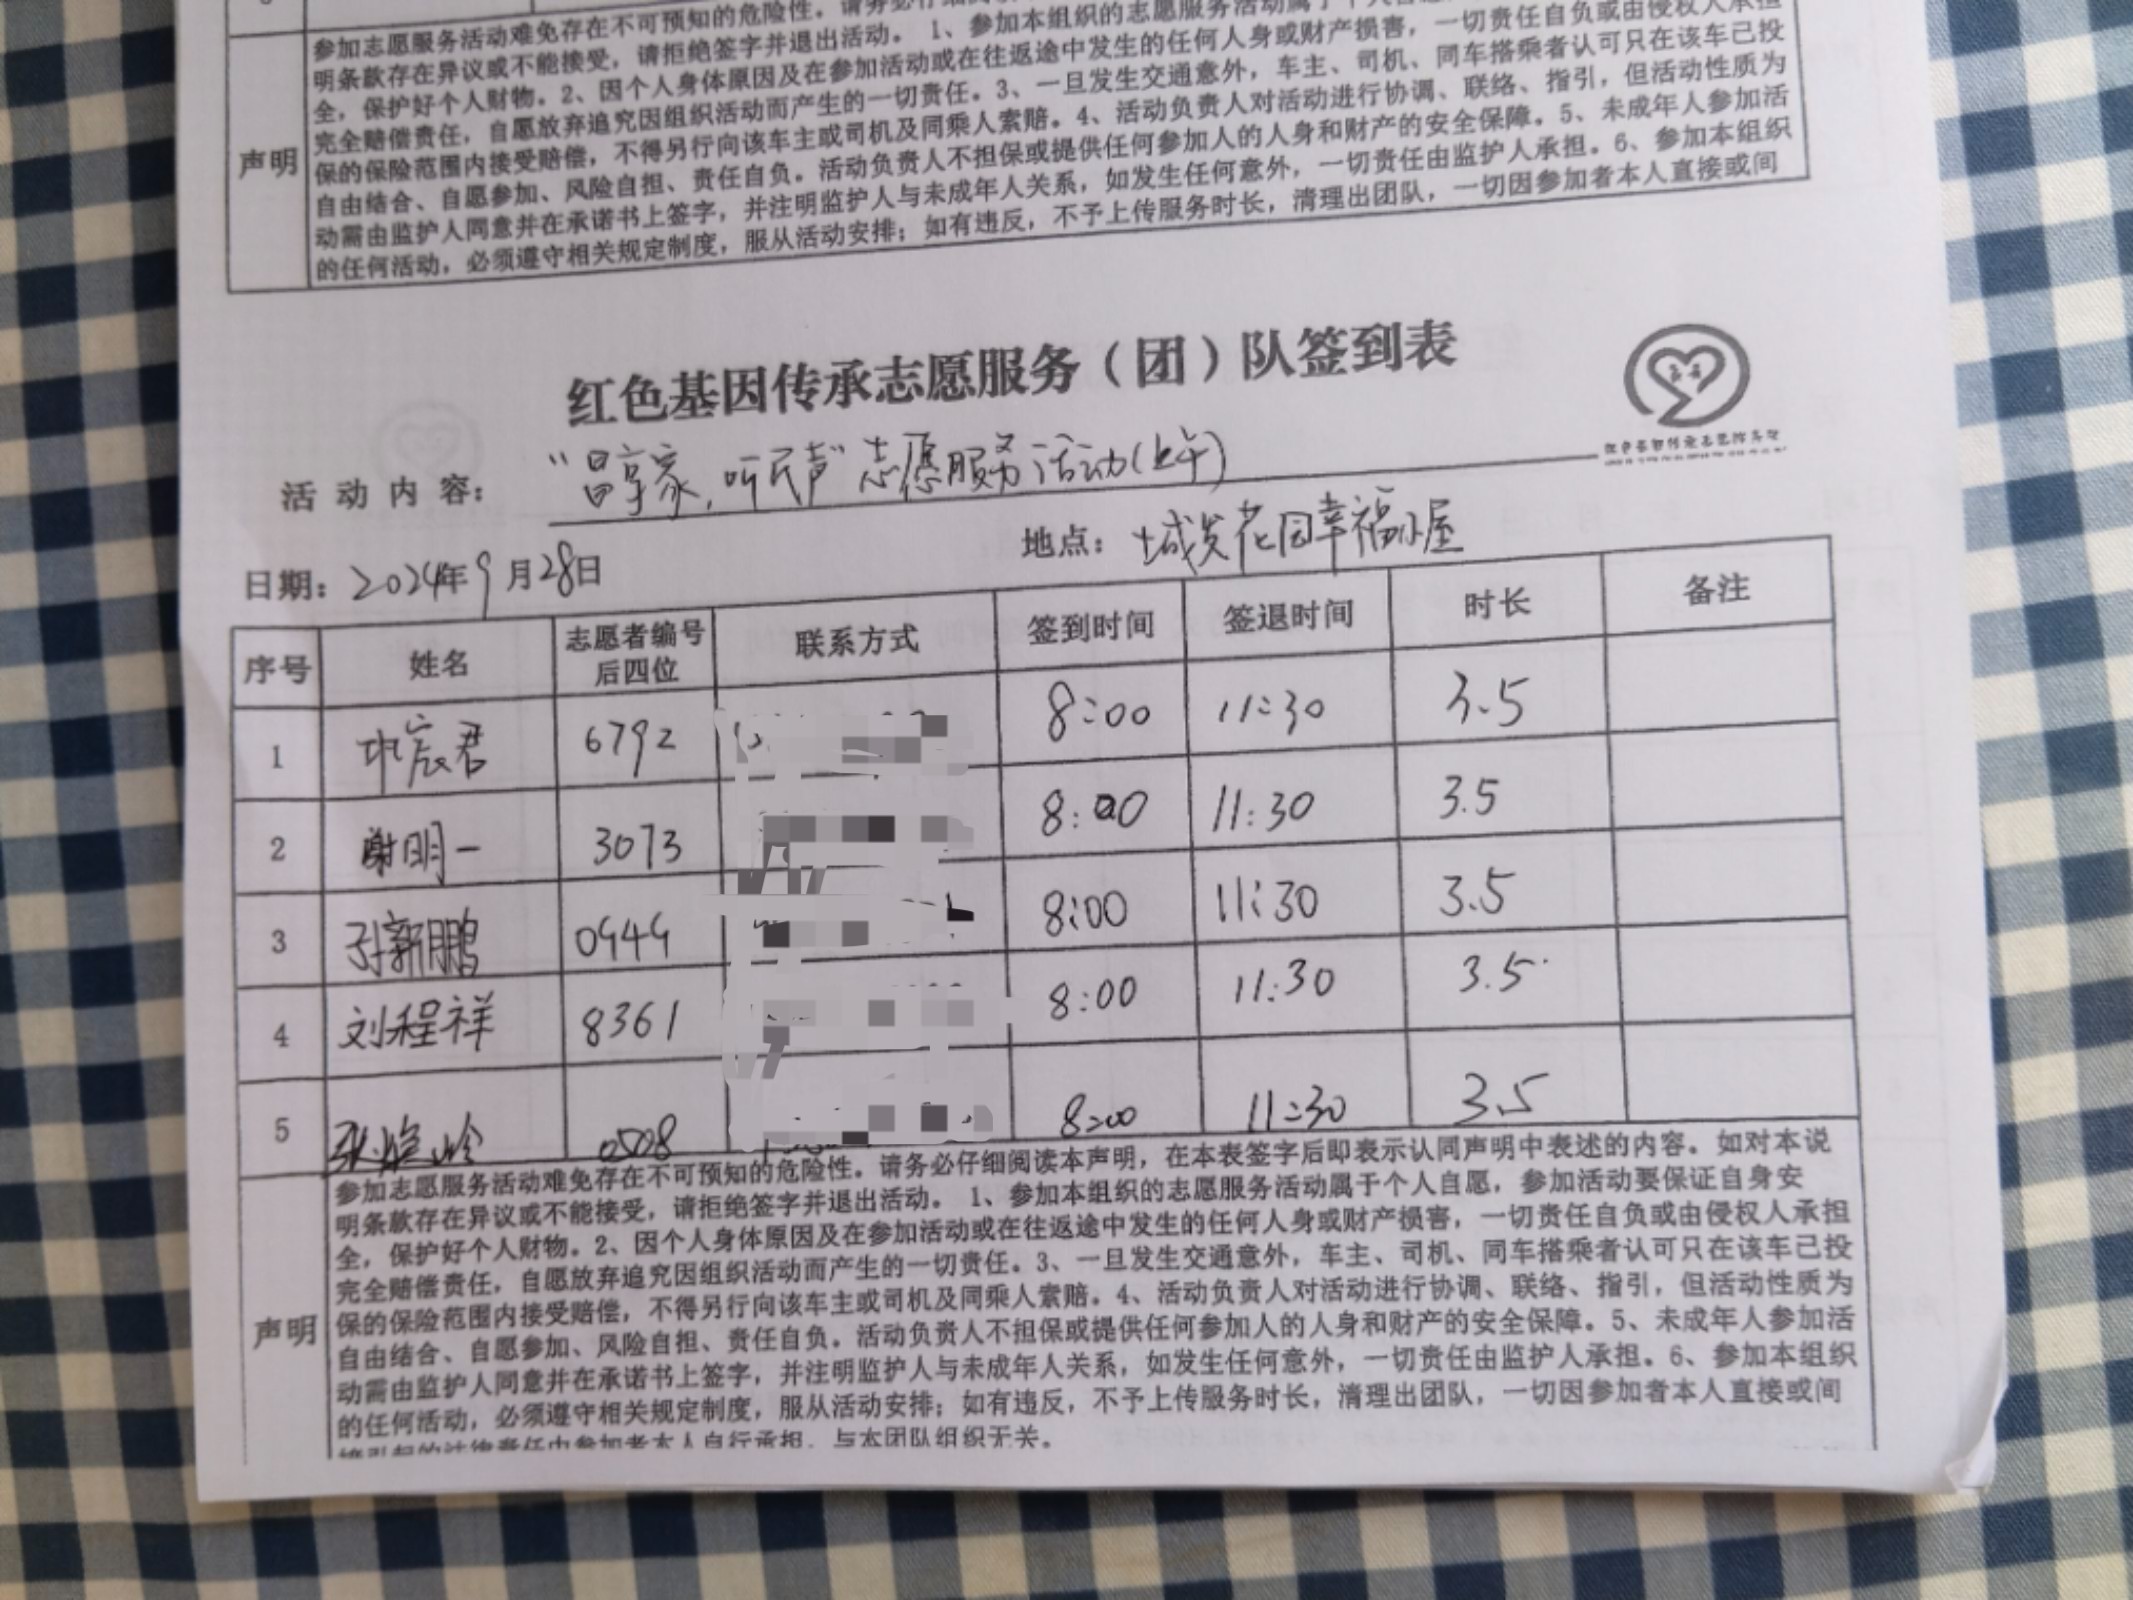 参加志愿服务活动难免存在不可预知的危险性。请务必仔细阅
明条款存在异议或不能接受，请拒绝签字并退出活动。 1、参加本组织的志愿服务活动属于个人
全，保护好个人财物。2、因个人身体原因及在参加活动或在往返途中发生的任何人身或财产损害，一切责任自负或由侵权人承担
完全赔偿责任，自愿放弃追究因组织活动而产生的一切责任。3、一旦发生交通意外，车主、司机、同车搭乘者认可只在该车已投
保的保险范围内接受赔偿，不得另行向该车主或司机及同乘人索赔。4、活动负责人对活动进行协调、联络、指引，但活动性质为
声明
自由结合、自愿参加、风险自担、责任自负。活动负责人不担保或提供任何参加人的人身和财产的安全保障。5、未成年人参加活
动需由监护人同意并在承诺书上签字，并注明监护人与未成年人关系，如发生任何意外，一切责任由监护人承担。6、参加本组织
的任何活动，必须遵守相关规定制度，服从活动安排；如有违反，不予上传服务时长，清理出团队，一切因参加者本人直接或间
红色基因传承志愿服务（团）队签到表
活动内容： “昌享家，听民声”志愿服务活动(上午)
日期：2024年9月28日 地点：城发花园幸福小屋
序号 姓名 志愿者编号后四位 联系方式 签到时间 签退时间 时长 备注
1 宸君 6792 8:00 11:30 3.5
2 谢明一 3073 8:00 11:30 3.5
3 孙新鹏 0949 8:00 11:30 3.5
4 刘程祥 8361 8:00 11:30 3.5
5 张 0508 8:00 11:30 3.5
参加志愿服务活动难免存在不可预知的危险性。请务必仔细阅读本声明，在本表签字后即表示认同声明中表述的内容。如对本说
明条款存在异议或不能接受，请拒绝签字并退出活动。 1、参加本组织的志愿服务活动属于个人自愿，参加活动要保证自身安
全，保护好个人财物。2、因个人身体原因及在参加活动或在往返途中发生的任何人身或财产损害，一切责任自负或由侵权人承担
完全赔偿责任，自愿放弃追究因组织活动而产生的一切责任。3、一旦发生交通意外，车主、司机、同车搭乘者认可只在该车已投
保的保险范围内接受赔偿，不得另行向该车主或司机及同乘人索赔。4、活动负责人对活动进行协调、联络、指引，但活动性质为
声明
自由结合、自愿参加、风险自担、责任自负。活动负责人不担保或提供任何参加人的人身和财产的安全保障。5、未成年人参加活
动需由监护人同意并在承诺书上签字，并注明监护人与未成年人关系，如发生任何意外，一切责任由监护人承担。6、参加本组织
的任何活动，必须遵守相关规定制度，服从活动安排；如有违反，不予上传服务时长，清理出团队，一切因参加者本人直接或间
接引起的法律责任由参加者本人自行承担，与本团队组织无关。